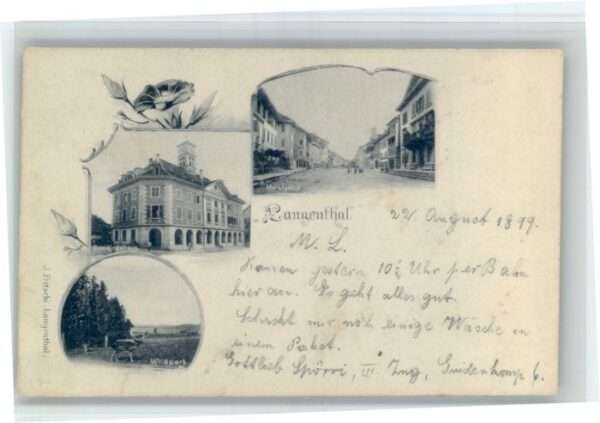 Marktgasse
Langenthal
22 August 1899.
M. L.
Kamen gestern 10½ Uhr per Bahn
hier an. Es geht alles gut.
Schickt mir noch einige Wäsche in
einem Paket.
Gottlieb Spörri, III Zug, Guidenkomp 6.
Wildpark
J. Fritschi, Langenthal.